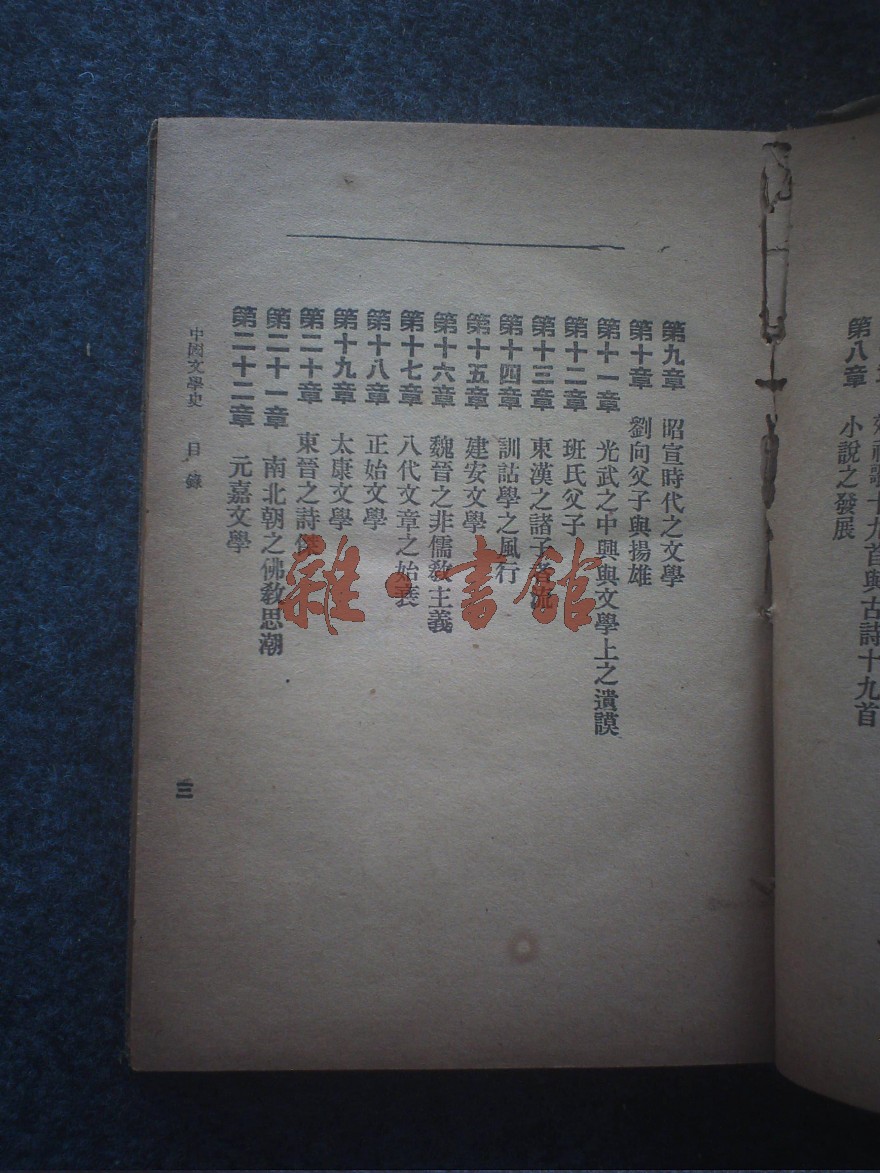 郊祀歌十九首與古詩十九首
第八章 小說之發展
第九章 昭宣時代之文學
第十章 劉向父子與揚雄
第十一章 光武之中興與文學上之遺謨
第十二章 班氏父子
第十三章 東漢之諸子者流
第十四章 訓詁學之風行
第十五章 建安文學
第十六章 魏晉之非儒教主義
第十七章 八代文章之始衰
第十八章 正始文學
第十九章 太康文學
第二十章 東晉之詩傑
第二十一章 南北朝之佛教思潮
第二十二章 元嘉文學
中國文學史 目錄
三
雜·書館